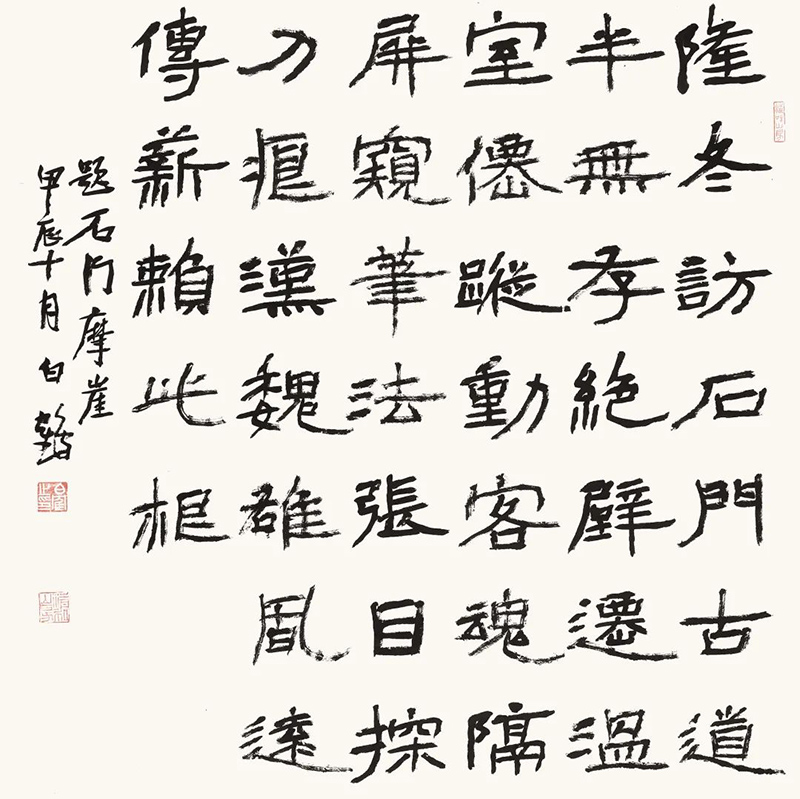 隆冬訪石門古道
半無存絕壁遷溫
室僊蹤動客魂隔
屏窺筆法張目探
刀痕漢魏雄風遠
傳薪賴此根
題石门摩崖
甲辰十月白